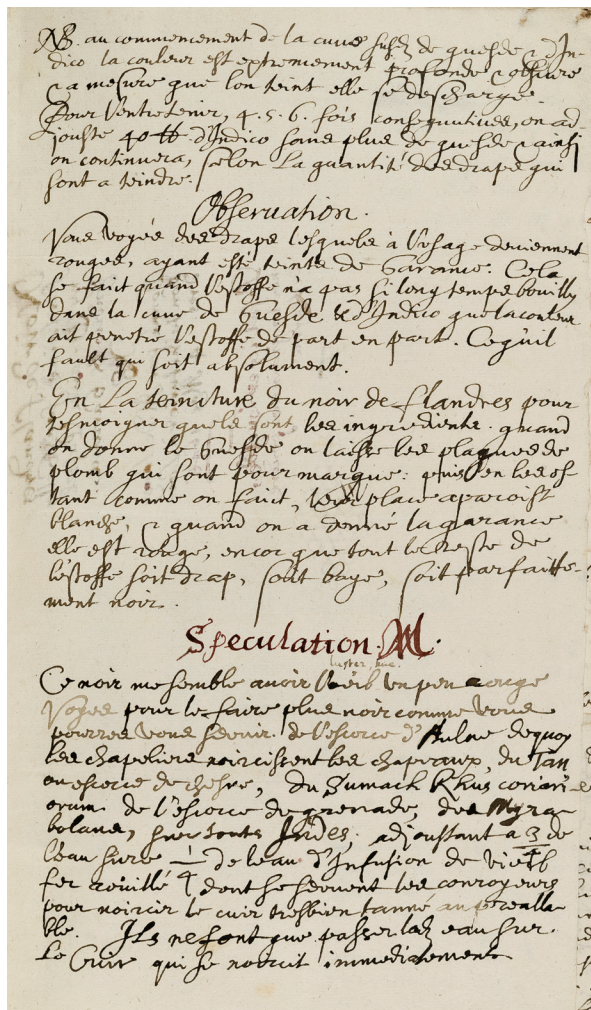 NB. au commencement de la cuve susd. de guesde & d'In-
dico la couleur est extremement profonde & obscure
& a mesure que lon teint elle se descharge.
Pour l'entretenir, 4. 5. 6. fois consequutives, on ad
jouste 40 ℔. d'Indico sans plus de guesde & ainsi
on continuera, selon la quantité des draps qui
sont a teindre.
Observation.
Vous voyés des draps lesquels à l'usage deviennent
rouges, ayant esté teints de Garance. Cela
se faict quand l'estoffe n'a pas si long temps bouilly
dans la cuve de Guesde & d'Indico que la couleur
ait penetré l'estoffe de part en part. Ce qu'il
fault qui soit absolument.
En La teincture du noir de flandres pour
tesmoigner quels sont les ingredients. quand
on donne le Guesde on laisse les plaques de
plomb qui sont pour marque: puis en les os
tant comme on faict, place aparoist
blanche, & quand on a donné la garance
elle est rouge, encor que tout le reste de
l'estoffe soit drap, soit baye, soit parfaitte-
ment noir.
Speculation. M.
Ce noir me semble avoir l'œil un peu rouge
Voyes pour le faire plus noir comme vous
pourres vous servir. de l'escorce d'Aulne de quoy
les chapeliers noircissent les chapeaux, du Tan
ou escorce de chesne, du Sumach Rhus coriari-
orum. de l'escorce de grenade, des Myra-
bolans, sur touts Indes, adjoustant a 3 de
l'eau sure de l'eau d'Infusion de vieil
fer rouillé dont se servent les conroyeurs
pour noircir le cuir tresbien tanné au prealla-
ble. Ils ne font que passer lad. eau sur
Le Cuir qui se noircit immediatement